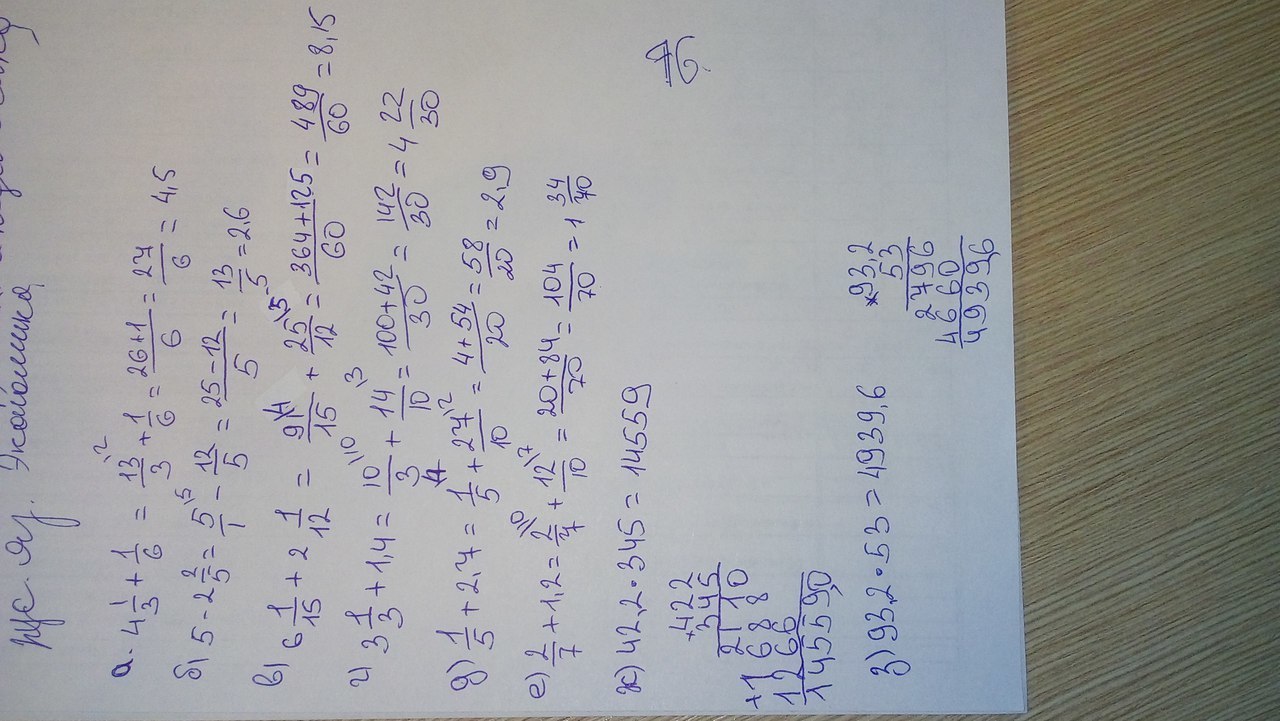 рус яз. Экономика,
а. 4 1/3 + 1/6 = 13/3 \2 + 1/6 = 26+1/6 = 27/6 = 4,5
б) 5 - 2 2/5 = 5/1 \5 - 12/5 = 25-12/5 = 13/5 = 2,6
в) 6 1/15 + 2 1/12 = 91/15 \4 + 25/12 \5 = 364+125/60 = 489/60 = 8,15
г) 3 1/3 + 1,4 = 10/3 \10 + 14/10 \3 = 100+42/30 = 142/30 = 4 22/30
д) 1/5 + 2,7 = 1/5 \4 + 27/10 \2 = 4+54/20 = 58/20 = 2,9
е) 2/7 + 1,2 = 2/7 \10 + 12/10 \7 = 20+84/70 = 104/70 = 1 34/70
ж) 42,2 · 345 = 14559
422
345
2110
+1688
1266
145590
з) 93,2 · 53 = 4939,6
×93,2
53
2796
4660
4939,6